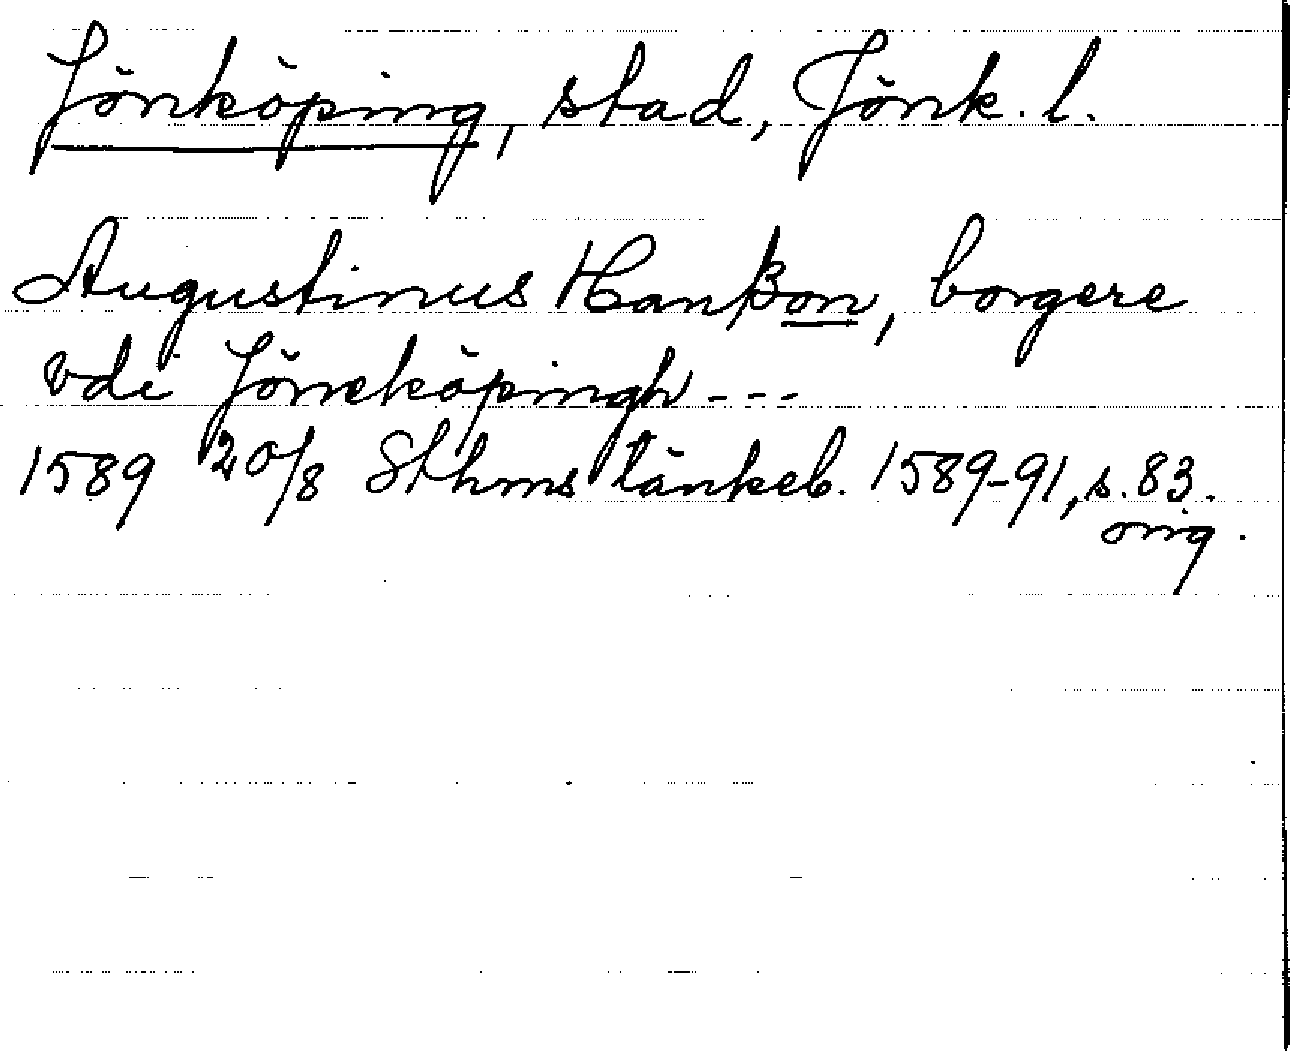 Jönköping, stad, Jönk. l.
Augustinus Hanßon, borgere
vdi Jöneköpingh ---
1589 20/8 Sthms tänkeb. 1589-91, s. 83.
orig.